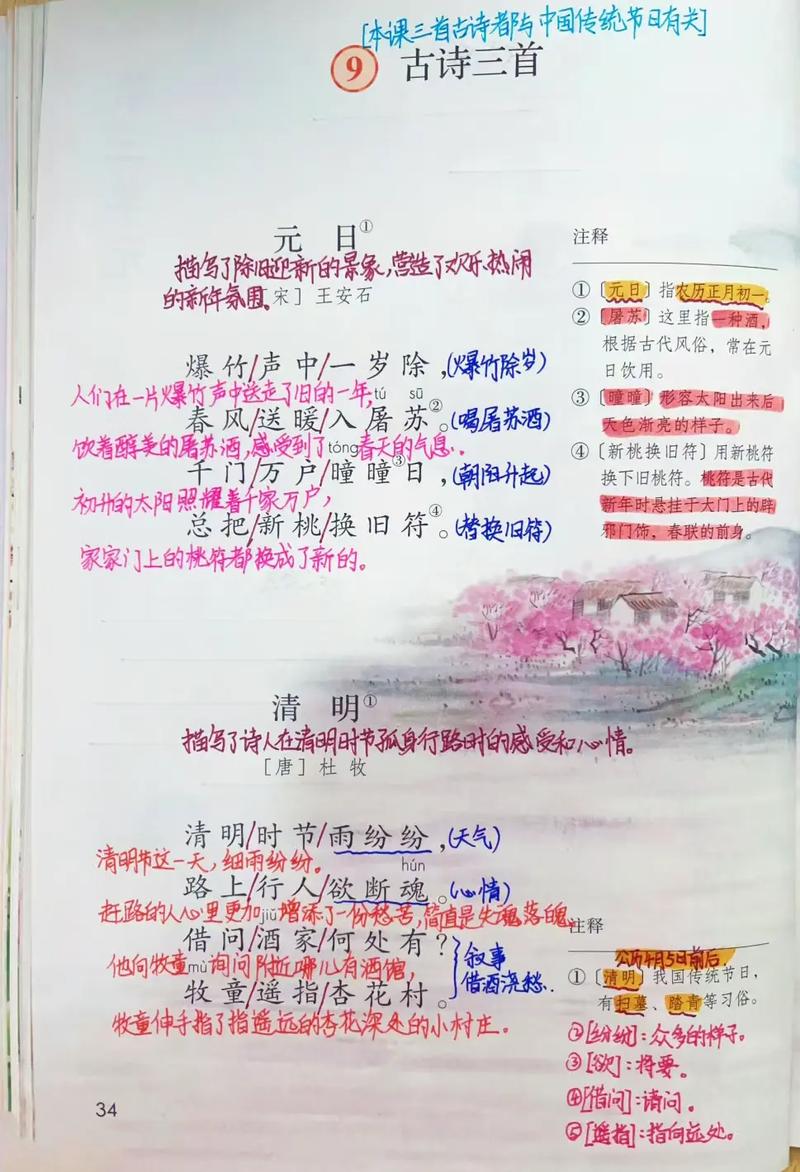 [本课三首古诗都与中国传统节日有关]
9 古诗三首
元日①
描写了除旧迎新的景象,营造了欢乐、热闹
的新年氛围。[宋] 王安石
爆竹/声中/一岁除,(爆竹除岁)
人们在一片爆竹声中送走了旧的一年,
tú sū
春风/送暖/入屠苏②。(喝屠苏酒)
饮着醇美的屠苏酒,感受到了春天的气息。
tóng
千门/万户/曈曈③日,(朝阳升起)
初升的太阳照耀着千家万户,
总把/新桃/换旧符④。(替换旧符)
家家门上的桃符都换成了新的。
注释
①〔元日〕指农历正月初一。
②〔屠苏〕这里指一种酒,
根据古代风俗,常在元
日饮用。
③〔曈曈〕形容太阳出来后
天色渐亮的样子。
④〔新桃换旧符〕用新桃符
换下旧桃符。桃符是古代
新年时悬挂于大门上的辟
邪门饰,春联的前身。
清明①
描写了诗人在清明时节孤身行路时的感受和心情。
[唐] 杜牧
清明/时节/雨纷纷,(天气)
清明节这一天,细雨纷纷。
hún
路上/行人/欲断魂。(心情)
赶路的人心里更加增添了一份愁苦,简直是失魂落魄。
jiǔ
借问/酒家/何处有?
他向牧童询问附近哪儿有酒馆,
mù
牧童/遥指/杏花村。
叙事
借酒浇愁.
牧童伸手指了指遥远的杏花深处的小村庄。
注释
公历4月5日前后
①〔清明〕我国传统节日,
有扫墓、踏青等习俗。
②[纷纷]:众多的样子。
③[欲]:将要。
④[借问]:请问。
⑤[遥指]:指向远处。
34